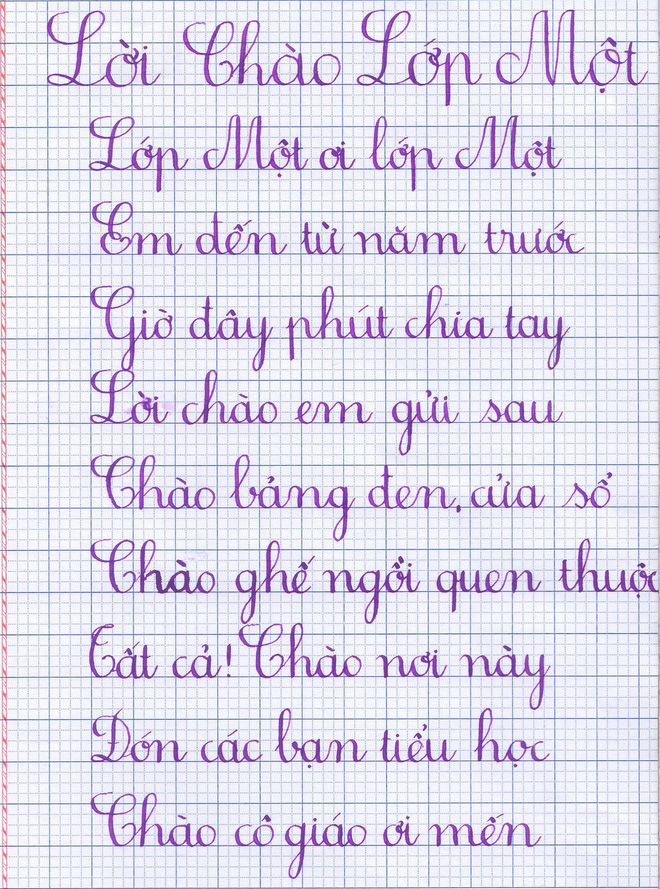 Lời Chào Lớp Một
Lớp Một ơi lớp Một
Em đến từ năm trước
Giờ đây phút chia tay
Lời chào em gửi sau
Chào bảng đen, cửa sổ
Chào ghế ngồi quen thuộc
Tất cả! Chào nơi này
Đón các bạn tiểu học
Chào cô giáo ơi mến